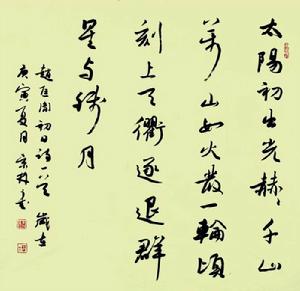 太陽初出光赫赫千山
萬山如火發一輪頃
刻上天衢逐退群
星与残月
趙匡胤初日詩一首歲在
庚寅夏月